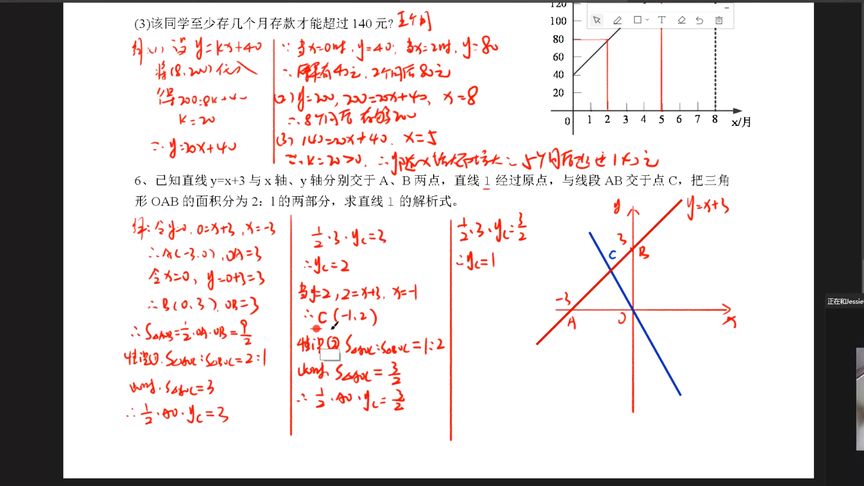 (3)该同学至少存几个月存款才能超过 140 元? 五个月
解(1) 设 y=kx+40
将(8,200)代入
得200=8k+40
k=20
∴y=20x+40
∵当x=0时,y=40. 当x=2时,y=80
∴原有40元,2个月后80元
(2) y=200, 200=20x+40, x=8
∴8个月后存够200
(3) 140=20x+40. x=5
∵k=20>0. ∴y随x增大而增大
120
100
80
60
40
20
0 1 2 3 4 5 6 7 8 x/月
6、已知直线 y=x+3 与 x 轴、y 轴分别交于 A、B 两点，直线 l 经过原点，与线段 AB 交于点 C，把三角
形 OAB 的面积分为 2：1 的两部分，求直线 l 的解析式。
解:令y=0, 0=x+3, x=-3
∴A(-3,0), OA=3
令x=0, y=0+3=3
∴B(0,3). OB=3
∴S△AOB=1/2·OA·OB=9/2
情况①. S△AOC:S△BOC=2:1
S△AOC=3
∴1/2·AO·yc=3
1/2·3·yc=3
∴yc=2
当y=2, 2=x+3. x=-1
∴C(-1,2)
情况② S△AOC:S△BOC=1:2
S△AOC=3/2
∴1/2·AO·yc=3/2
1/2·3·yc=3/2
∴yc=1
y
y=x+3
3
B
C
-3
A
O
x
正在和Jessie